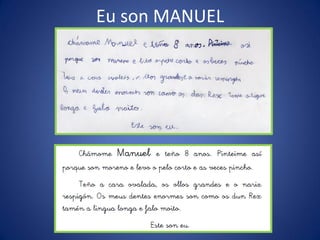 Eu son MANUEL
chámome Manuel e teño 8 anos. Pinteime así
porque son moreno e levo o pelo corto e as veces pincho
Teño a cara ovalada, os ollos grandes e o nariz respingón
Os meus dentes enormes son como os dun Rex tamén a lingua
longa e falo moito.
Este son eu.
Chámome Manuel e teño 8 anos. Pinteime así
porque son moreno e levo o pelo corto e as veces pincho.
Teño a cara ovalada, os ollos grandes e o nariz
respigón. Os meus dentes enormes son como os dun Rex
tamén a lingua longa e falo moito.
Este son eu.